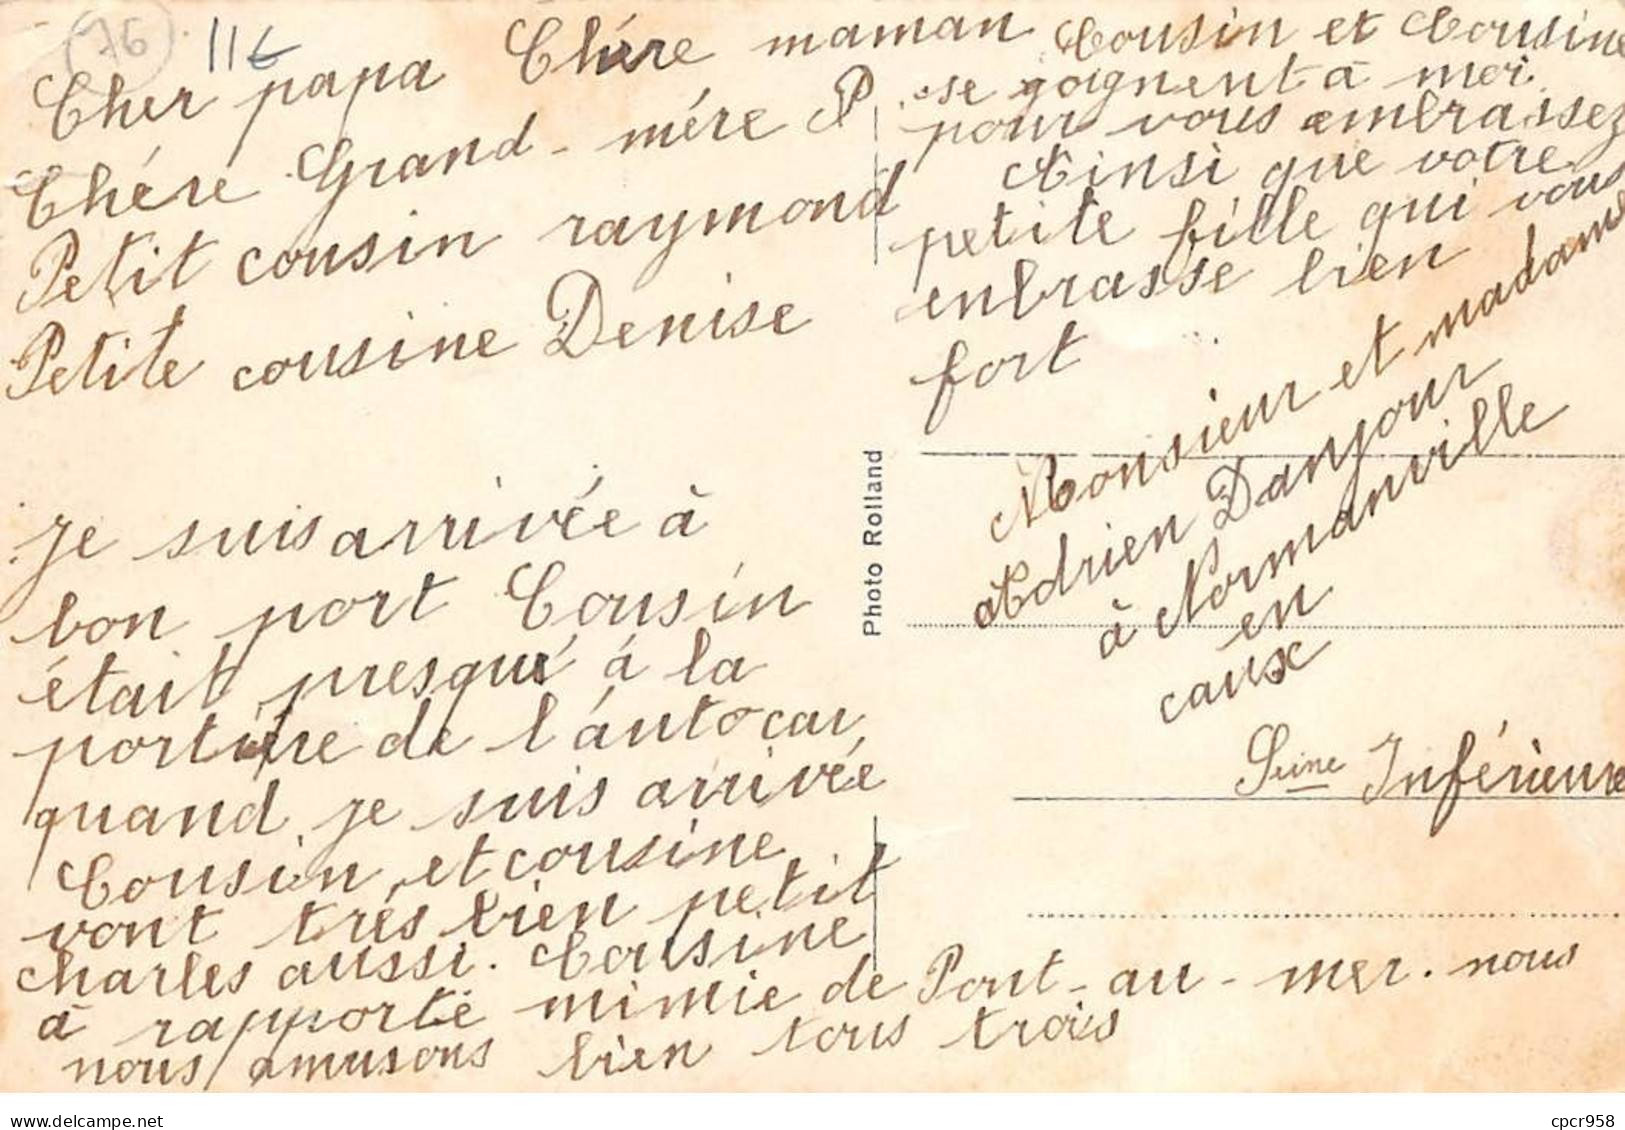 76
11€
Cher papa Chére maman
Chére Grand-mére P
Petit cousin raymond
Petite cousine Denise
Je suis arrivée à
bon port Cousin
était presqué á la
portière de l'áutocar
quand je suis arrivée
Cousin et cousine
vont trés bien petit
charles aussi. Cousine
à rapporté mimie de Pont-au-mer. nous
nous amusons bien tous trois
Cousin et Cousine
se joignent à moi
pour vous embrassez
Ainsi que votre
petite fille qui vous
enbrasse bien
fort
Monsieur et madame
Adrien Danjour
à Normanville
en
caux
Seine Inférieure
Photo Rolland
delcampe.net
cpcr958